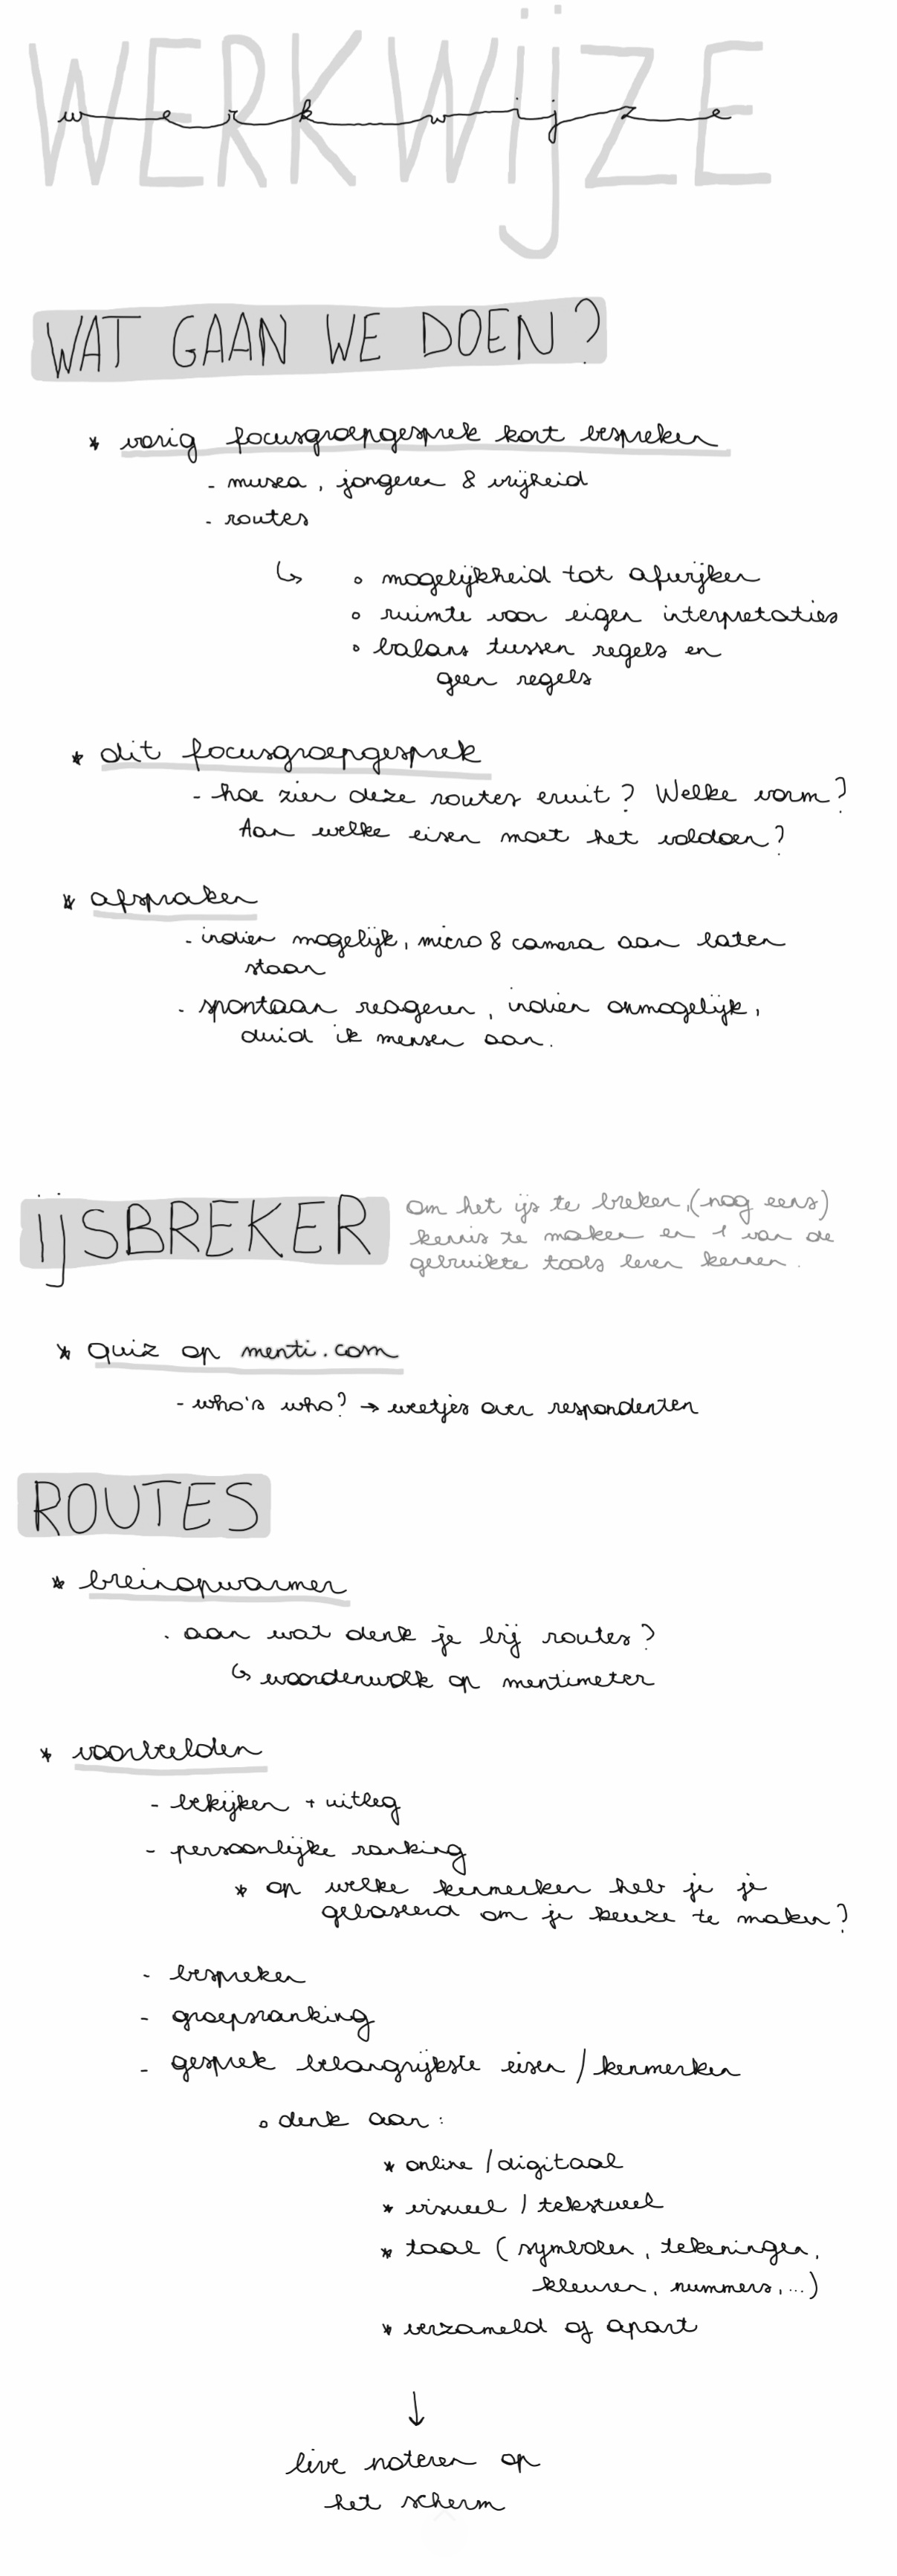 WERKWIJZE
werkwijze
WAT GAAN WE DOEN?
* vorig focusgroepgesprek kort bespreken
- musea, jongeren & vrijheid
- routes
↳ ° mogelijkheid tot afwijken
° ruimte voor eigen interpretaties
° balans tussen regels en
geen regels
* dit focusgroepgesprek
- hoe zien deze routes eruit? Welke vorm?
Aan welke eisen moet het voldoen?
* afspraken
- indien mogelijk, micro & camera aan laten
staan
- spontaan reageren, indien onmogelijk,
duid ik mensen aan.
IJSBREKER
om het ijs te breken, (nog eens)
kennis te maken en 1 van de
gebruikte tools leren kennen.
* quiz op menti.com
- who's who? → weetjes over respondenten
ROUTES
* breinopwarmer
- aan wat denk je bij routes?
↳ woordenwolk op mentimeter
* voorbeelden
- bekijken + uitleg
- persoonlijke ranking
* op welke kenmerken heb je je
gebaseerd om je keuze te maken?
- bespreken
- groepsranking
- gesprek belangrijkste eisen / kenmerken
° denk aan:
* online / digitaal
* visueel / tekstueel
* taal (symbolen, tekeningen,
kleuren, nummers, ...)
* verzameld of apart
↓
live noteren op
het scherm